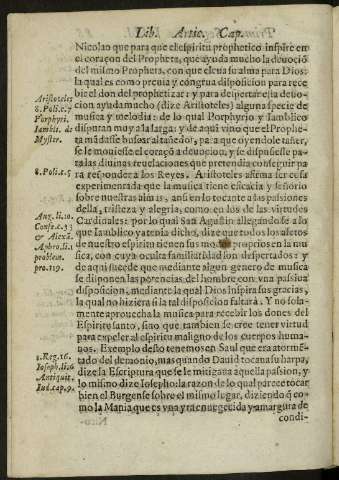 Lib. Artic. Cap.
Nicolao que para que el espiritu prophetico inspire en
el coraçon del Propheta, que ayuda mucho la deuoció
del mismo Propheta, con que eleua su alma para Dios:
la qual es como preuia y congrua disposicion para rece-
bir el don del prophetizar: y para despertar esta deuo-
cion ayuda mucho (dize Aristoteles) alguna specie de
musica y melodia: de lo qual Porphyrio y Iamblico
disputan muy a la larga: y de aqui vino que el Prophe-
ta mãdasse buscar al tañedor, para que oyendole tañer,
se le mouiesse el coraçõ a deuocion, y se dispusiesse pa-
ra las diuinas reuelaciones que pretendia conseguir pa
ra responder a los Reyes. Aristoteles afirma ser cosa
experimentada que la musica tiene eficacia y señorio
sobre nuestras almas, ansi en lo tocante a las passiones
della, tristeza y alegria, como en los de las virtudes
Cardinales: por lo qual San Agustin allegandose a lo
que Iamblico ya tenia dicho, dize que todos los afetos
de nuestro espiritu tienen sus modos proprios en la mu
sica, con cuya oculta familiaridad son despertados: y
de aqui sucede que mediante algun genero de musica
se disponen las potencias del hombre con vna passiua
disposicion, mediante la qual Dios inspira sus gracias,
la qual no hiziera si la tal disposicion faltara. Y no sola-
mente aprouecha la musica para recebir los dones del
Espiritu santo, sino que tambien se cree tener virtud
para expeler al espiritu maligno de los cuerpos huma-
nos. Exemplo desto tenemos en Saul que era atormẽ-
tado del demonio, mas quando Dauid tocaua su harpa,
dize la Escriptura que se le mitigaua aquella passion, y
lo mismo dize Iosepho: la razon de lo qual parece tocar
bien el Burgense sobre el mismo lugar, diziendo q̃ co-
mo la Mania que es vna y tan ennegrecida y amargura de
condi-
Aristoteles
8. Poli. c. 7
Porphyri.
Iambli. de
Myster.
8. Poli. c. 5
Aug. li. 10.
Confe. c. 33
& Alexã.
Aphro. li. 1
problem.
pro. 119.
1. Reg. 16.
Ioseph. li. 6
Antiquit.
Iud. cap. 9.